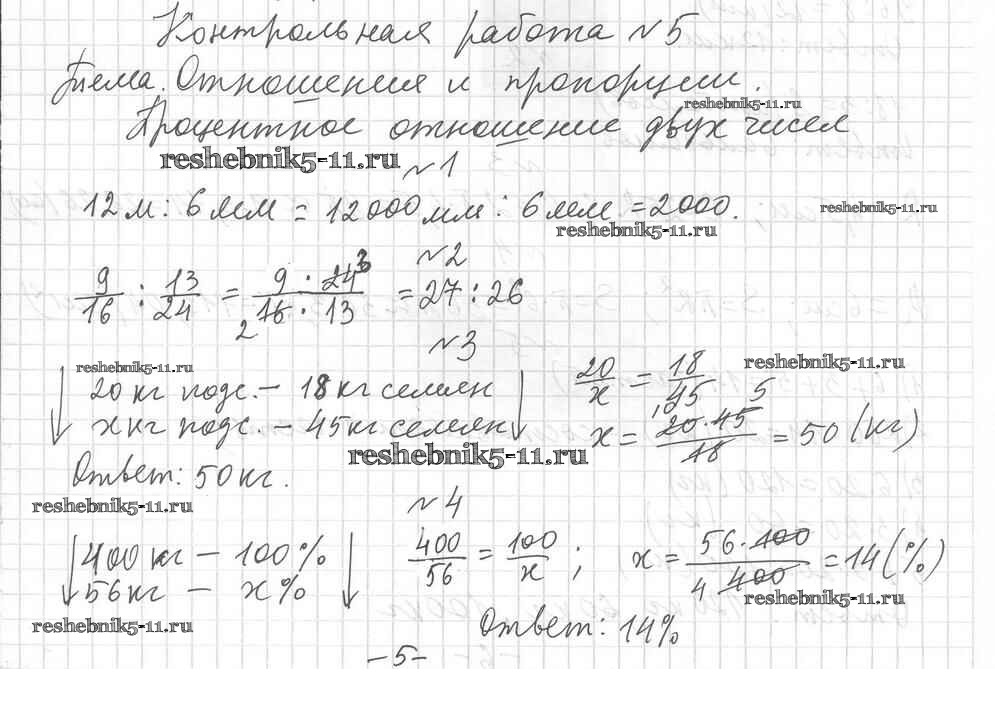 Контрольная работа №5
Тема. Отношения и пропорции.
reshebnik5-11.ru
Процентное отношение двух чисел
reshebnik5-11.ru
№1
12м : 6мм = 12000мм : 6мм = 2000.
reshebnik5-11.ru
reshebnik5-11.ru
№2
9/16 : 13/24 = 9·24 3/2 16·13 = 27 : 26
№3
reshebnik5-11.ru
reshebnik5-11.ru
↓ 20кг подс. – 18кг семян ↓ 20/x = 18/45
x кг подс. – 45кг семян x = 20·45 5/18 = 50 (кг)
reshebnik5-11.ru
Ответ: 50кг.
reshebnik5-11.ru
№4
↓ 400кг – 100% ↓ 400/56 = 100/x ; x = 56·100/4 400 = 14 (%)
56кг – x%
reshebnik5-11.ru
reshebnik5-11.ru
Ответ: 14%
–5–